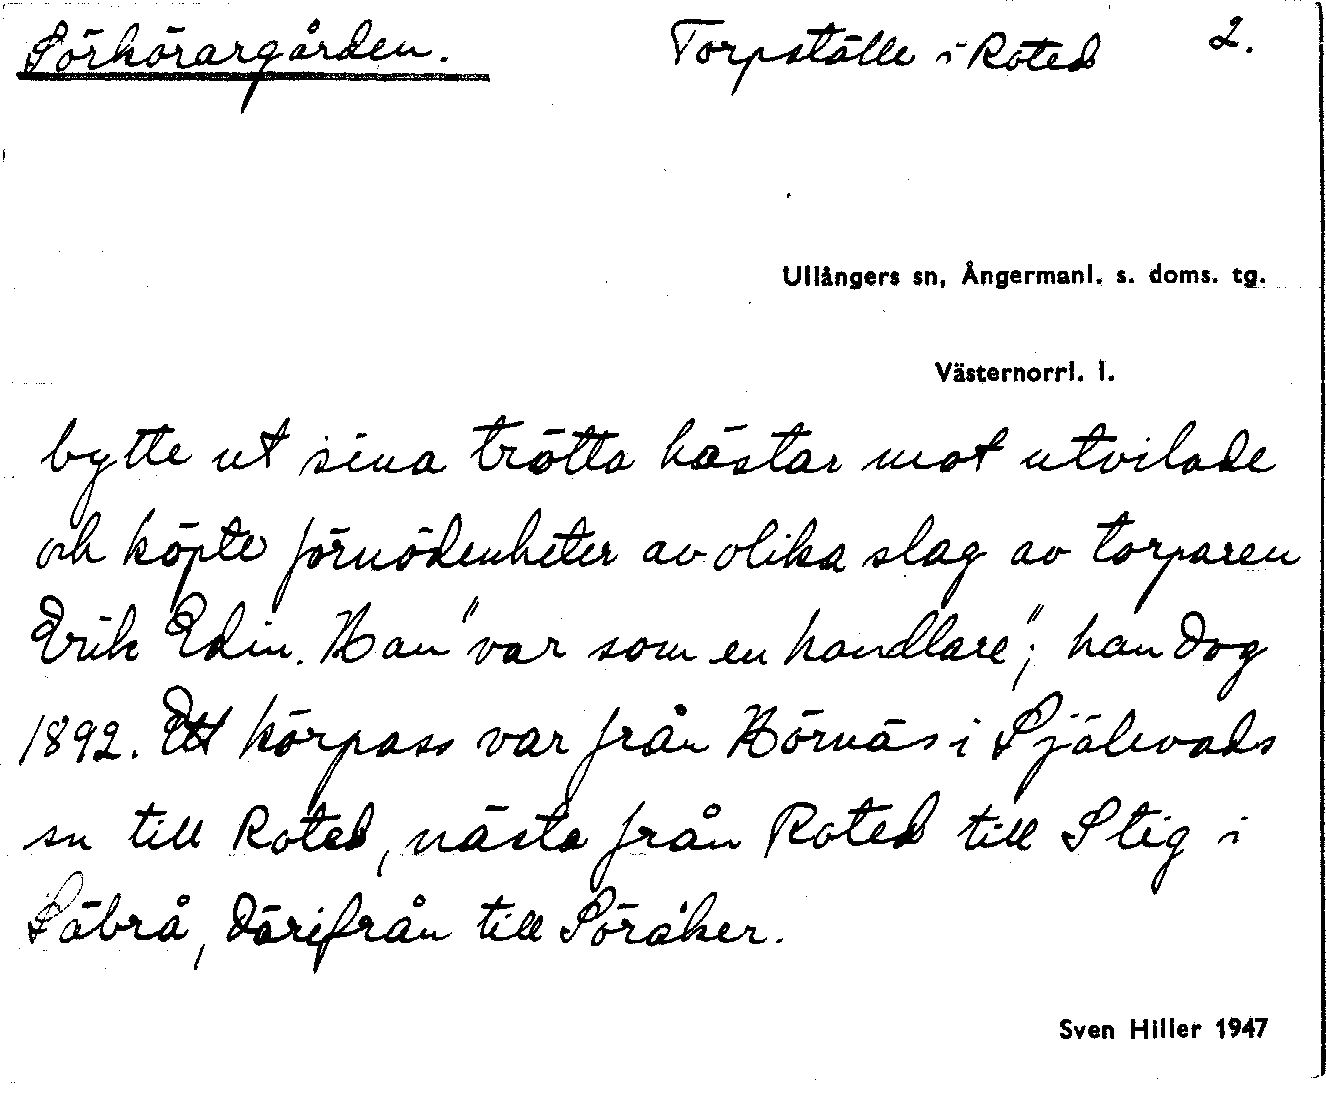 Sörkörargården. Torpställe i Roted 2.
Ullångers sn, Ångermanl. s. doms. tg.
Västernorrl. l.
bytte ut sina trötta hästar mot utvilade
och köpte förnödenheter av olika slag av torparen
Erik Edin. Han "var som en handlare"; han dog
1892. Ett körpass var från Hörnäs i Själevads
sn till Roted, nästa från Roted till Stig i
Säbrå, därifrån till Söråker.
Sven Hiller 1947